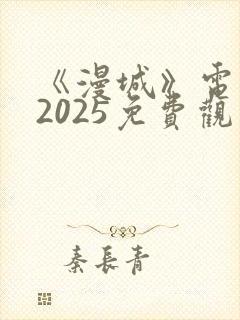 《漫城》電
2025免費觀
秦長青